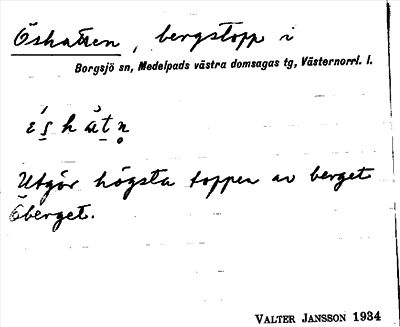 Öshatten, bergstopp i
Borgsjö sn, Medelpads västra domsagas tg, Västernorrl. l.
Utgör högsta toppen av berget
Öberget.
VALTER JANSSON 1934